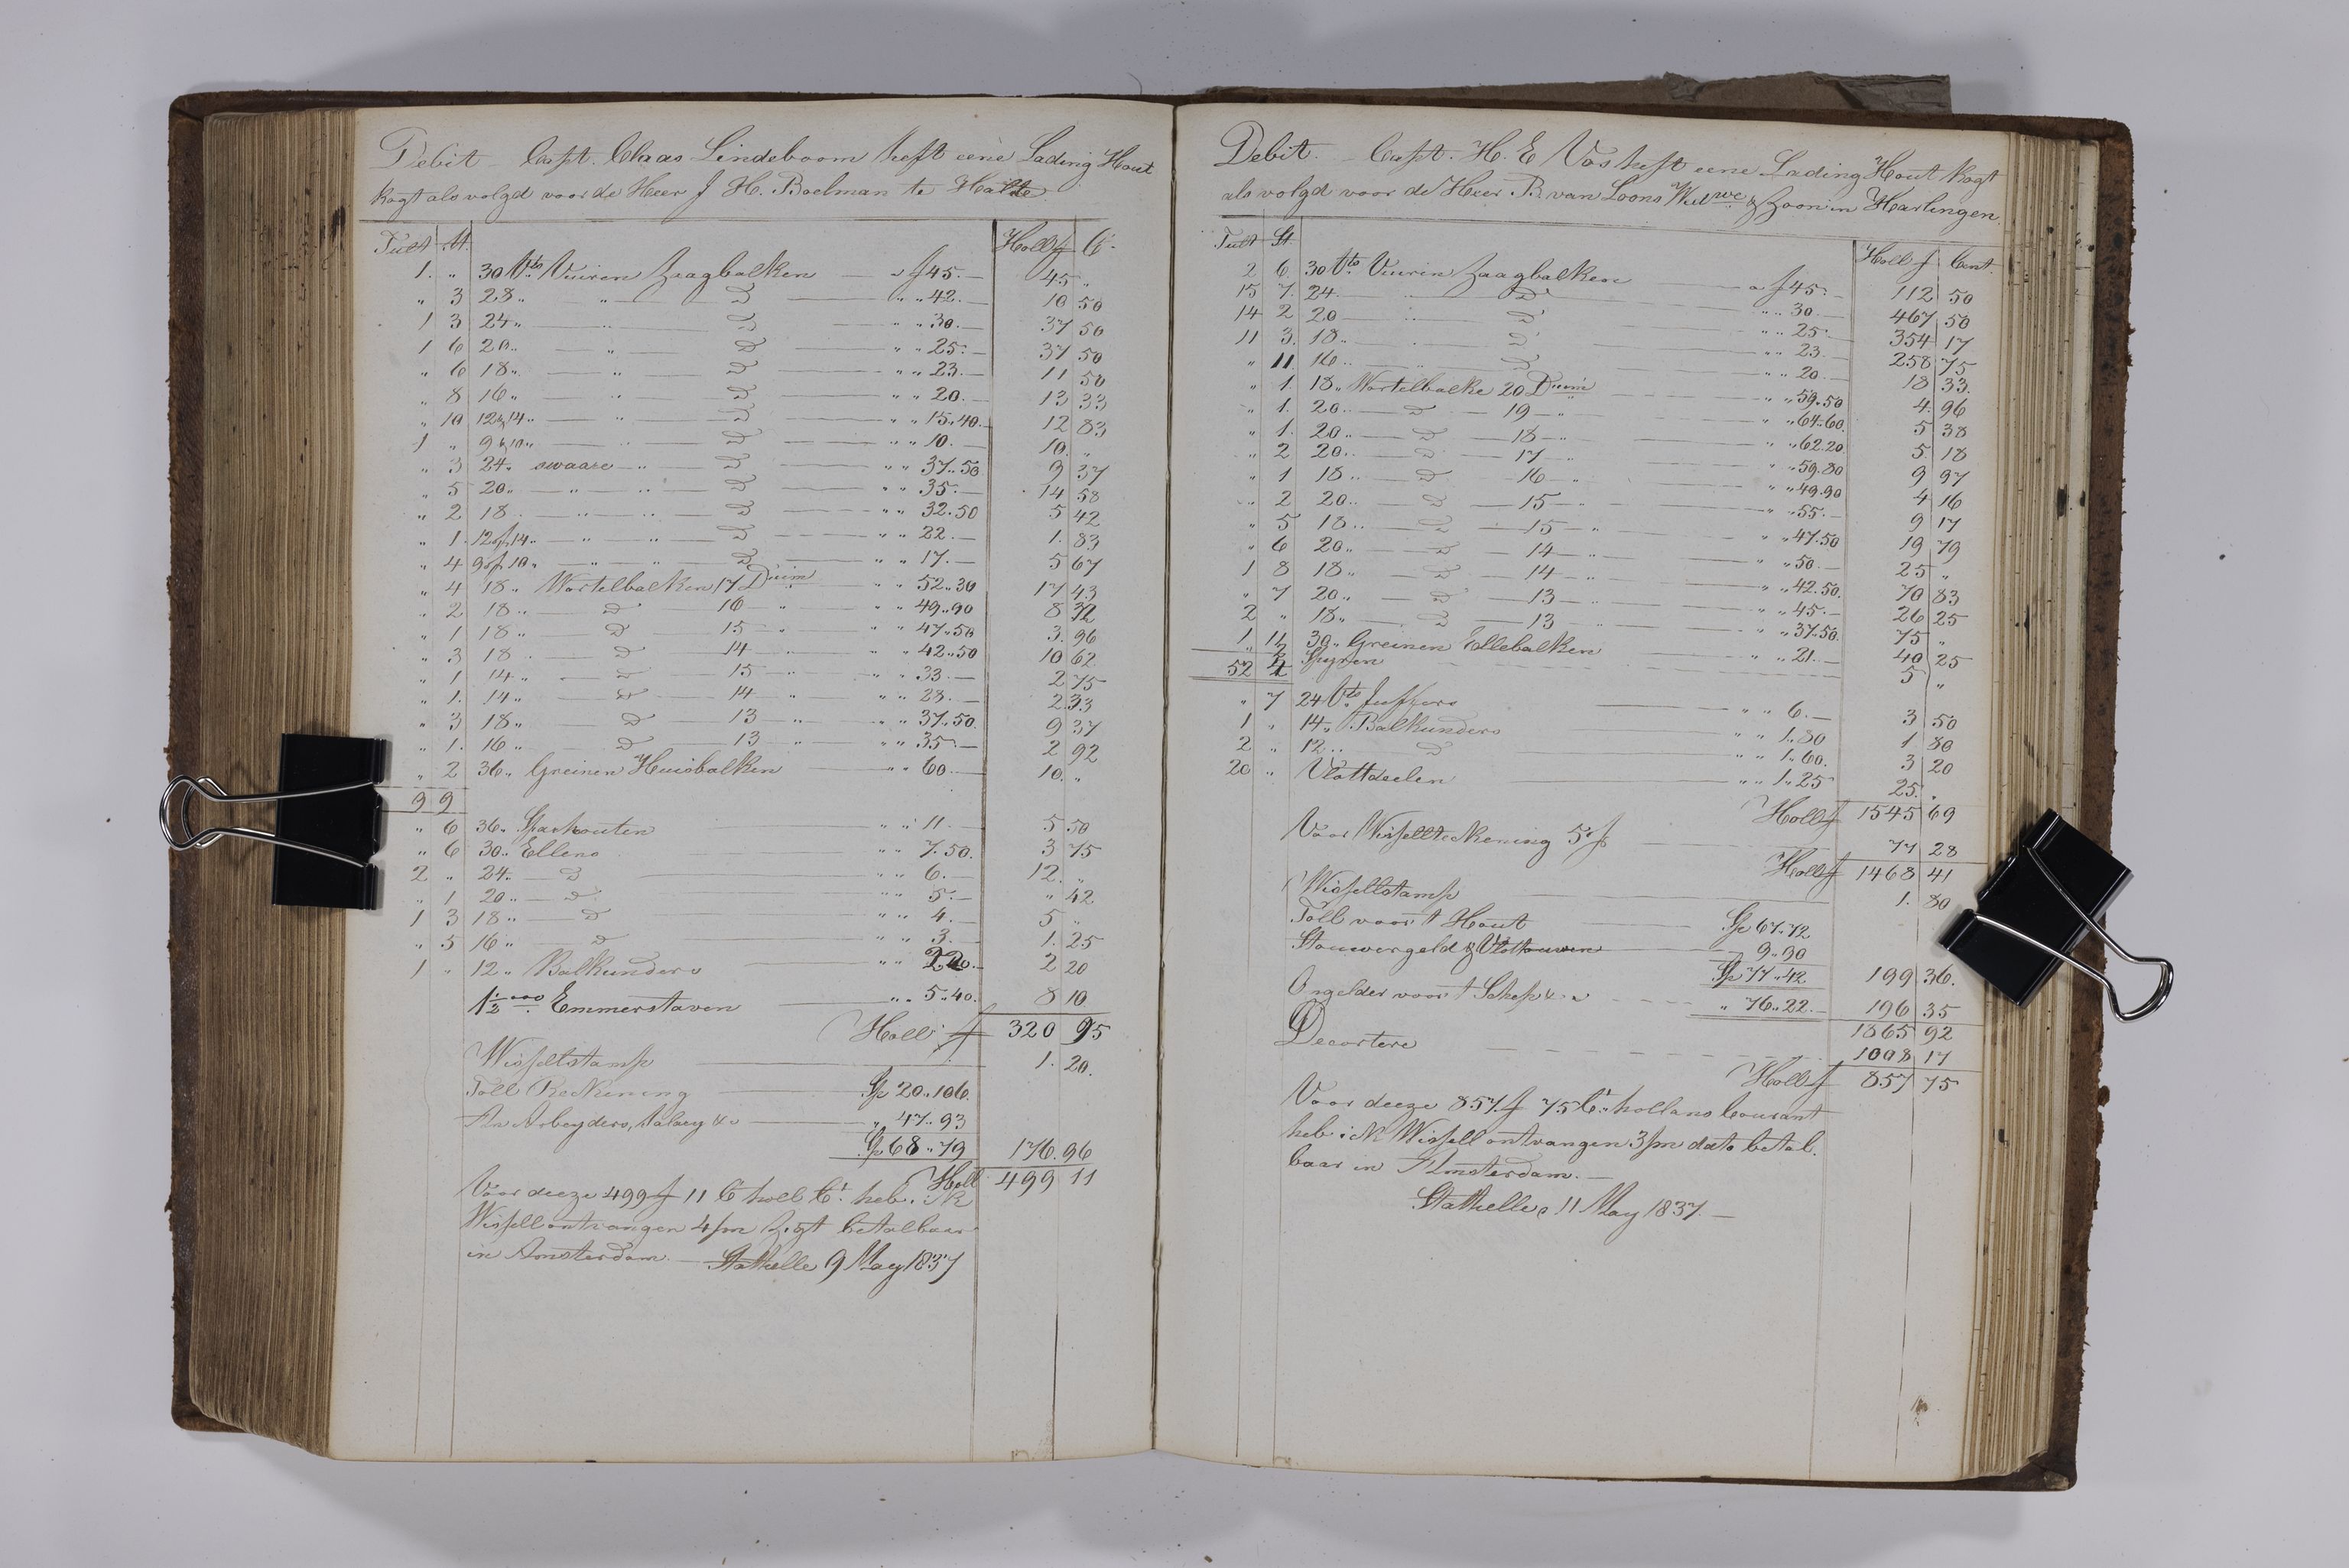 Debit — Capt. Claas Lindeboom heft eene Lading Hout
kogt als volgd voor de Heer J H. Boelman te Halte
Tult St. Holl f Ct.
1. „ 30 Vts Vuiren Zaagbalken — a f 45.— 45 „
„ 3 28„ „ D — „ „ 42.— 10 50
1 3 24„ „ D — „ „ 30.— 37 50
1 6 20„ „ D — „ „ 25.— 37 50
„ 6 18„ „ D — „ „ 23.— 11 50
„ 8 16„ „ D — „ „ 20.— 13 33
„ 10 12 & 14„ „ D — „ „ 15„40. 12 83
1 „ 9 & 10„ „ D — „ „ 10.— 10. „
„ 3 24„ swaare „ D — „ „ 37„50 9 37
„ 5 20„ „ „ D — „ „ 35.— 14 58
„ 2 18„ „ „ D — „ „ 32.50 5 42
„ 1. 12 of 14„ „ „ D — „ „ 22.— 1. 83
„ 4 9 of 10„ „ „ D — „ „ 17.— 5 67
„ 4 18„ Wortelbalken 17 Duim „ „ 52„30 17 43
„ 2 18„ D 16 „ „ „ 49„90 8 32
„ 1 18„ D 15 „ „ „ 47„50 3. 96
„ 3 18„ D 14 „ „ „ 42„50 10 62
„ 1 14„ D 15 „ „ „ 33.— 2 75
„ 1. 14„ D 14 „ „ „ 28.— 2 33
„ 3 18„ D 13 „ „ „ 37„50. 9 37
„ 1. 16„ D 13 „ „ „ 35.— 2 92
„ 2 36„ Greinen Huisbalken — „ „ 60.— 10. „
9 9
„ 6 36„ Sparhouten „ „ 11.— 5 50
„ 6 30„ Ellens „ „ 7.50. 3 75
2 „ 24„ D „ „ 6.— 12. „
„ 1 20„ D „ „ 5.— „ 42
1 3 18„ D „ „ 4.— 5 „
„ 5 16„ D „ „ 3.— 1. 25
1 „ 12„ Balkunders „ „ 2.20.— 2 20
1½ 000 Emmerstaven „ „ 5„40. 8 10
Holl f 320 95
Wisselstamp 1. 20.
Toll Reckening Sp 20„106.
An Arbeyders, Salary &c „ 47„93
Sp 68„79 176. 96
Holl 499 11
Voor deeze 499 f 11 C holl Ct. heb ik
Wissell ontvangen 4/m Zigt betalbaar
in Amsterdam. — Stathelle 9 May 1837
Debit. — Capt. H. E Vos heft eene Lading Hout kogt
als volgd voor de Heer R. van Loons Wedwe & Zoon in Harlingen.
Tult St. Holl f Cent.
2 6. 30 Vts Vuiren Zaagbalken — a f 45.— 112 50
15 7. 24. „ D „ „ 30.— 467 50
14 2 20 „ D „ „ 25.— 354 17
11 3. 18„ „ D „ „ 23.— 258 75
„ 11 16„ „ D „ „ 20.— 18 33.
„ 1. 18„ Wortelbalke 20 Duim „ „ 59„50 4. 96
„ 1. 20„ D 19 „ „ „ 64„60. 5 38
„ 1. 20„ D 18 „ „ „ 62.20. 5. 18
„ 2 20„ D 17 „ „ „ 59.80 9 97
„ 1 18„ D 16 „ „ „ 49.90 4 16
„ 2 20„ D 15 „ „ „ 55.— 9 17
„ 5 18„ D 15 „ „ „ 47.50 19 79
„ 6 20„ D 14 „ „ „ 50.— 25 „
1 8 18„ D 14 „ „ „ 42.50. 70 83
„ 7 20„ D 13 „ „ „ 45.— 26 25
2 „ 18„ D 13 „ „ „ 37.50. 75 „
1 11 30„ Greinen Ellebalken „ „ 21.— 40 25
Spyren 5 „
52
„ 7 24 Vts Juffers „ „ 6.— 3 50
1 „ 14„ Balkunders „ „ 1.80 1 80
2 „ 12„ D „ „ 1„60. 3 20
20 „ Vlottdeelen „ „ 1„25 25. „
Holl f 1545 69
Voor Wisselltreckening 5 f 77 28
Holl f 1468 41
Wisselstamp 1. 80
Toll voor t Hout Sp 67.72
Stouwergeld & Vlottouwen 9„90
Sp 77„42 199 36.
Ongelder voor t Schip &c „ 76„22.— 196 35
1865 92
Decortere 1008 17
Holl f 857 75
Voor deeze 857. f 75 Ct. hollans Courant
heb ik Wissell ontvangen 3/m dato betal.
baar in Amsterdam. —
Stathelle 11 May 1837. —